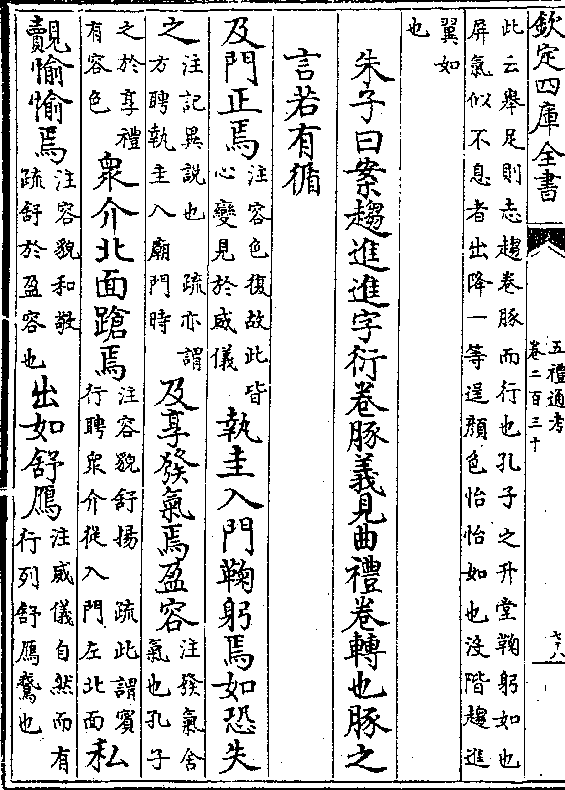 欽定四庫全書
五禮通考
卷二百三十
七十八
此云舉足則志趨卷豚而行也孔子之升堂鞠躬如也
屏氣似不息者出降一等逞顏色怡怡如也沒階趨進
翼如
也
朱子曰案趨進進字衍卷豚義見曲禮卷轉也豚之
言若有循
及門正焉注容色復故此皆心變見於威儀執圭入門鞠躬焉如恐失
之注記異說也 疏亦謂方聘執圭入廟門時及享發氣焉盈容注發氣舍氣也孔子
之於享禮有容色衆介北面蹌焉注容貌舒揚 疏此謂賓行聘衆介從入門左北面私
覿愉愉焉注容貌和敬疏舒於盈容也出如舒鴈注威儀自然而有行列舒鴈鵞也